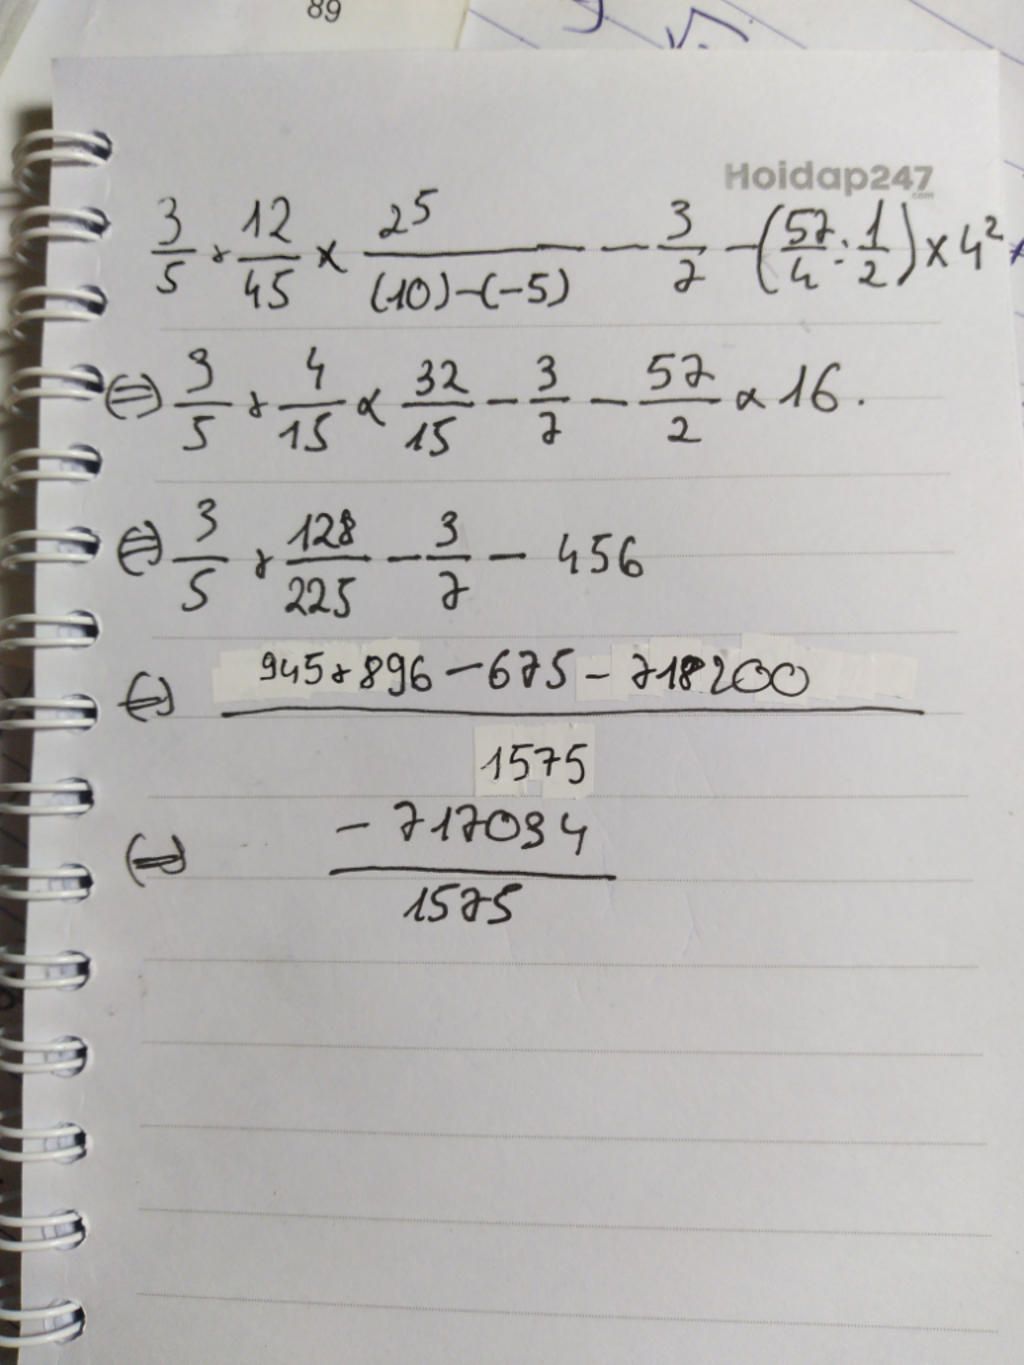 89
Hoidap247
.com
3/5 + 12/45 × 2⁵/((10)-(-5)) - 3/7 - (57/4 : 1/2) × 4²
⇔ 3/5 + 4/15 × 32/15 - 3/7 - 57/2 × 16.
⇔ 3/5 + 128/225 - 3/7 - 456
⇔ (945+896-675-718200)/1575
⇔ -717034/1575